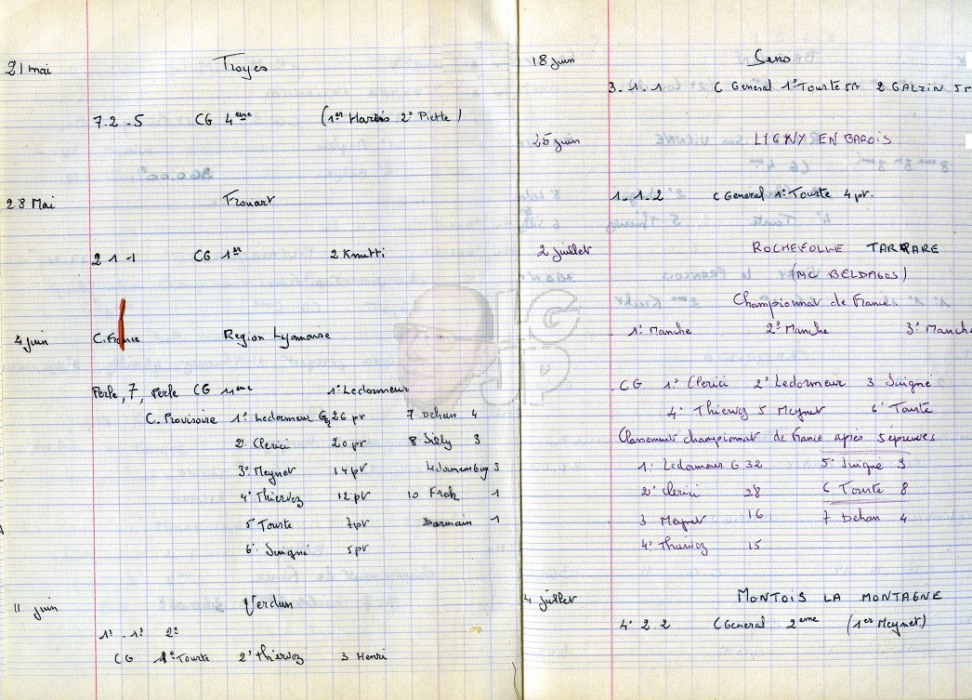 21 mai Troyes
7.2.5 CG 4eme (1er Harlis 2° Piette)
28 Mai Frouart
2 1 1 CG 1er 2 Knutti
4 juin C. France Region Lyonnaise
Perle, 7, Perle CG 11eme 1° Ledormeur
C. Provisoire 1° Ledormeur G 26 pr 7 Dehan 4
2° Clerici 20 pr 8 Siely 3
3° Meynet 14 pr 3
4° Thiervoz 12 pr 10 Frok 1
5 Tourte 7 pr Darmain 1
6° Juigné 5 pr
11 juin Verdun
1° . 1° 2°
CG 1° Tourte 2° Thiervoz 3 Henri
18 juin Sens
3.1.1 C General 1° Tourte 2 GALZIN
25 juin LIGNY EN BAROIS
1.1.2 C General 1° Tourte 4 pr.
2 juillet ROCHEFOLLE TARRARE
(MC BELDAGOS)
Championnat de France
1° Manche 2° Manche 3° Manche
CG 1° Clerici 2° Ledormeur 3 Juigné
4° Thiervoz 5 Meynet 6° Tourte
Classement championnat de France après 5 épreuves
1° Ledormeur G 32 5° Juigné 9
2° Clerici 28 6 Tourte 8
3 Meynet 16 7 Dehan 4
4° Thiervoz 15
4 juillet MONTOIS LA MONTAGNE
4° 2 2 C General 2eme (1er Meynet)
LG
JP